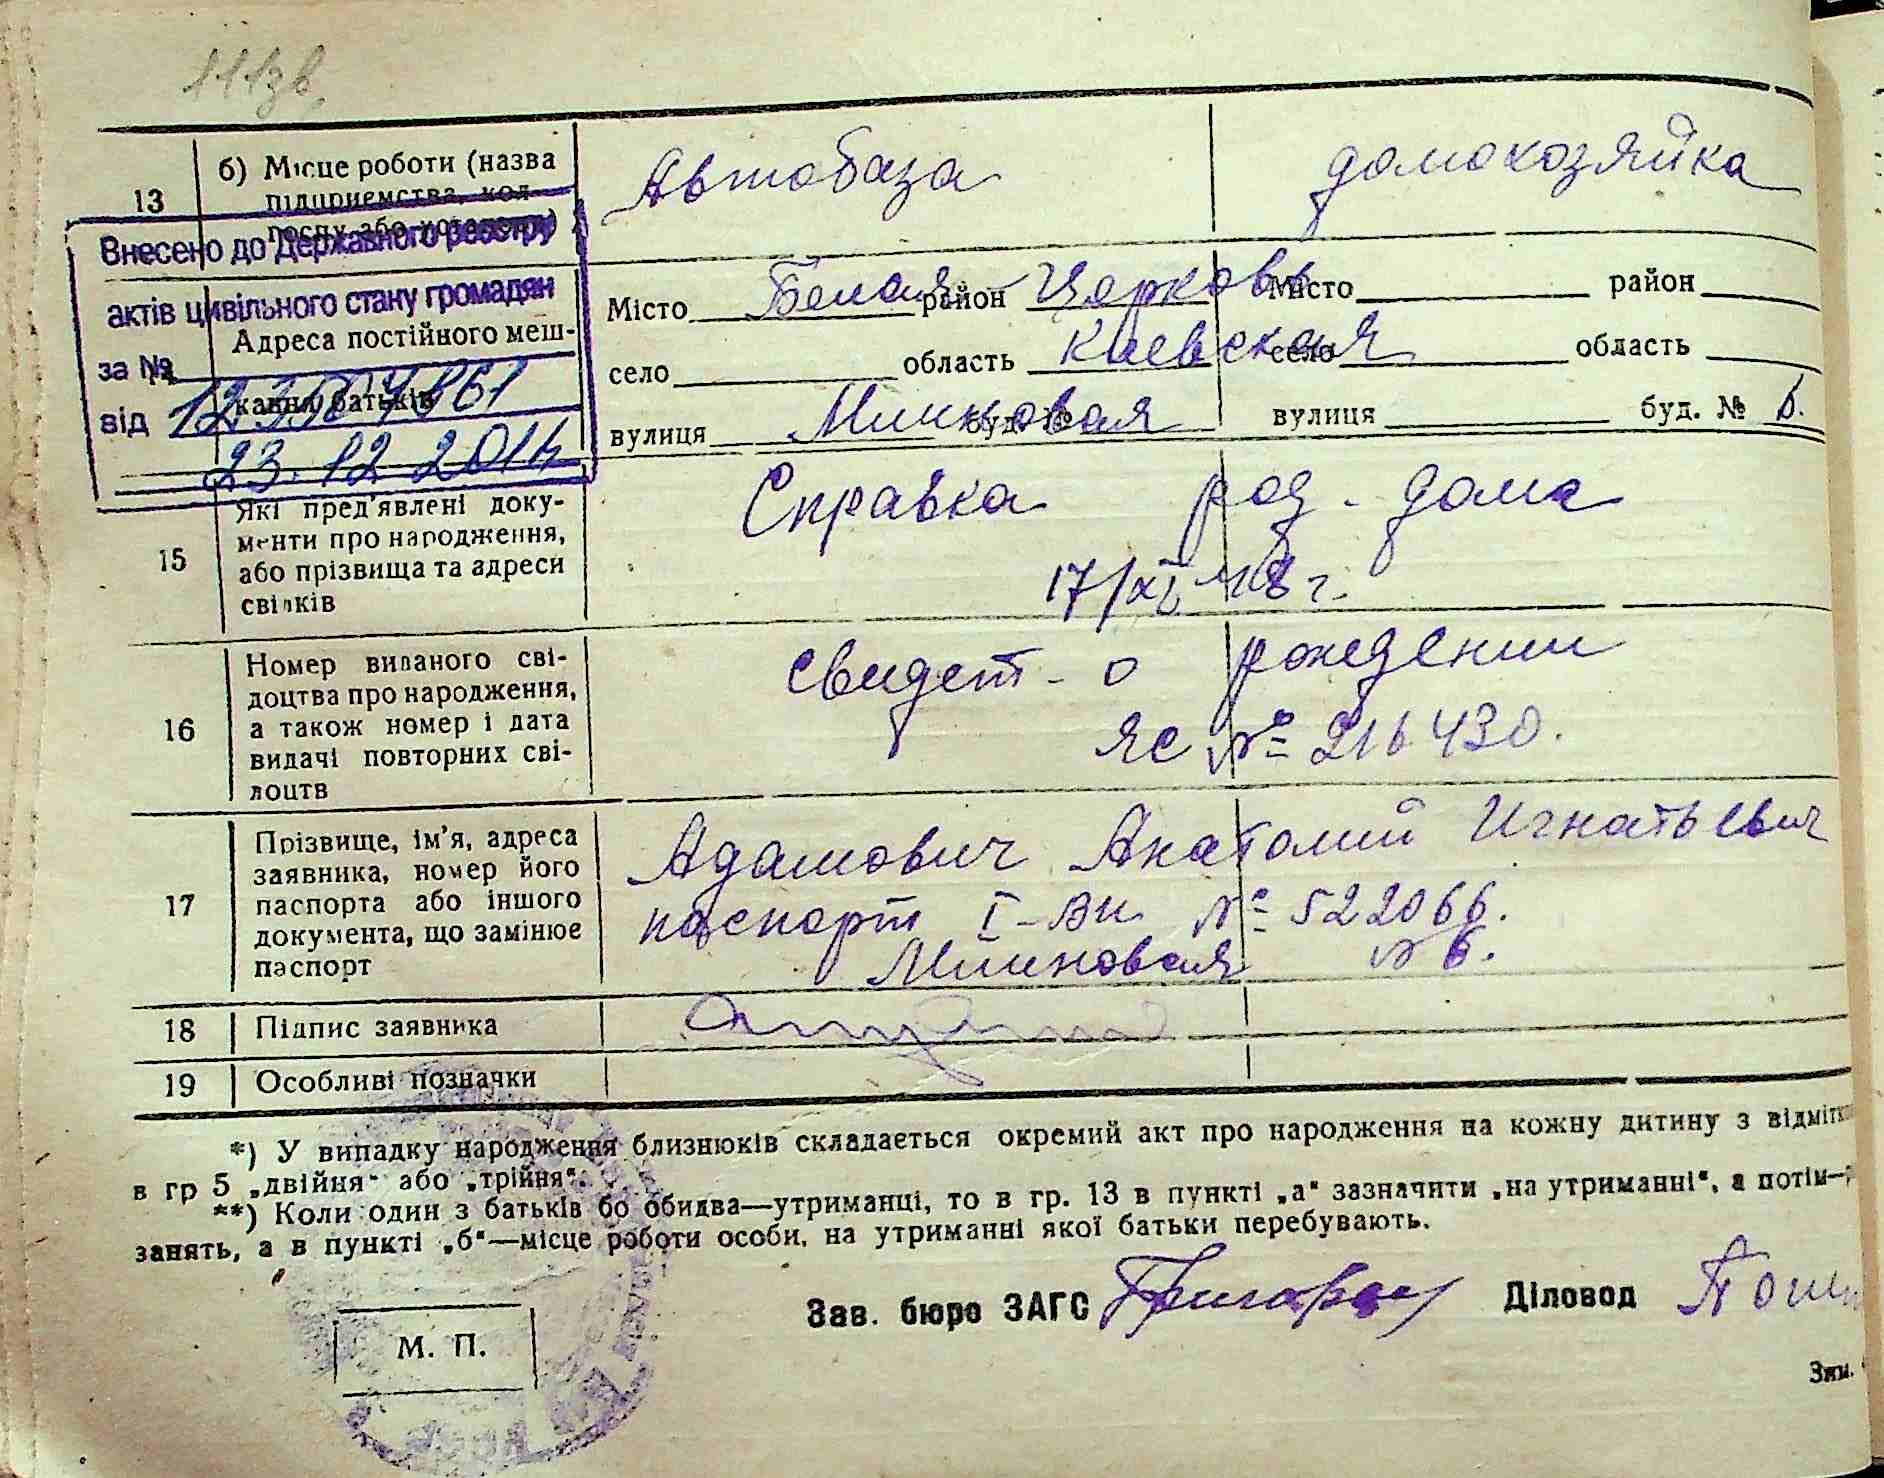 111зв
13
б) Місце роботи (назва
підприємства, кол-
госпу або установи)
Автобаза
домохозяйка
Внесено до Державного реєстру
актів цивільного стану громадян
за №
від
23.12.2014
Адреса постійного меш-
кання батьків
Місто Белая район Церковь
село область Киевская
вулиця Млиновая буд. №
Місто район
село область
вулиця буд. № 6.
15
Які пред'явлені доку-
менти про народження,
або прізвища та адреси
свідків
Справка род. дома
17/XI 48 г.
16
Номер виданого сві-
доцтва про народження,
а також номер і дата
видачі повторних сві-
доцтв
свидет-о рождении
ЯС № 216430.
17
Прізвище, ім'я, адреса
заявника, номер його
паспорта або іншого
документа, що замінює
паспорт
Адамович Анатолий Игнатьевич
паспорт I-ВИ № 522066.
Млиновая № 6.
18
Підпис заявника
19
Особливі позначки
*) У випадку народження близнюків складається окремий акт про народження на кожну дитину з відмітко
в гр 5 „двійня" або „трійня".
**) Коли один з батьків бо обидва—утриманці, то в гр. 13 в пункті „а" зазначити „на утриманні", а потім—
занять, а в пункті „б"—місце роботи особи, на утриманні якої батьки перебувають.
Зав. бюро ЗАГС
Діловод
М. П.
Зам.